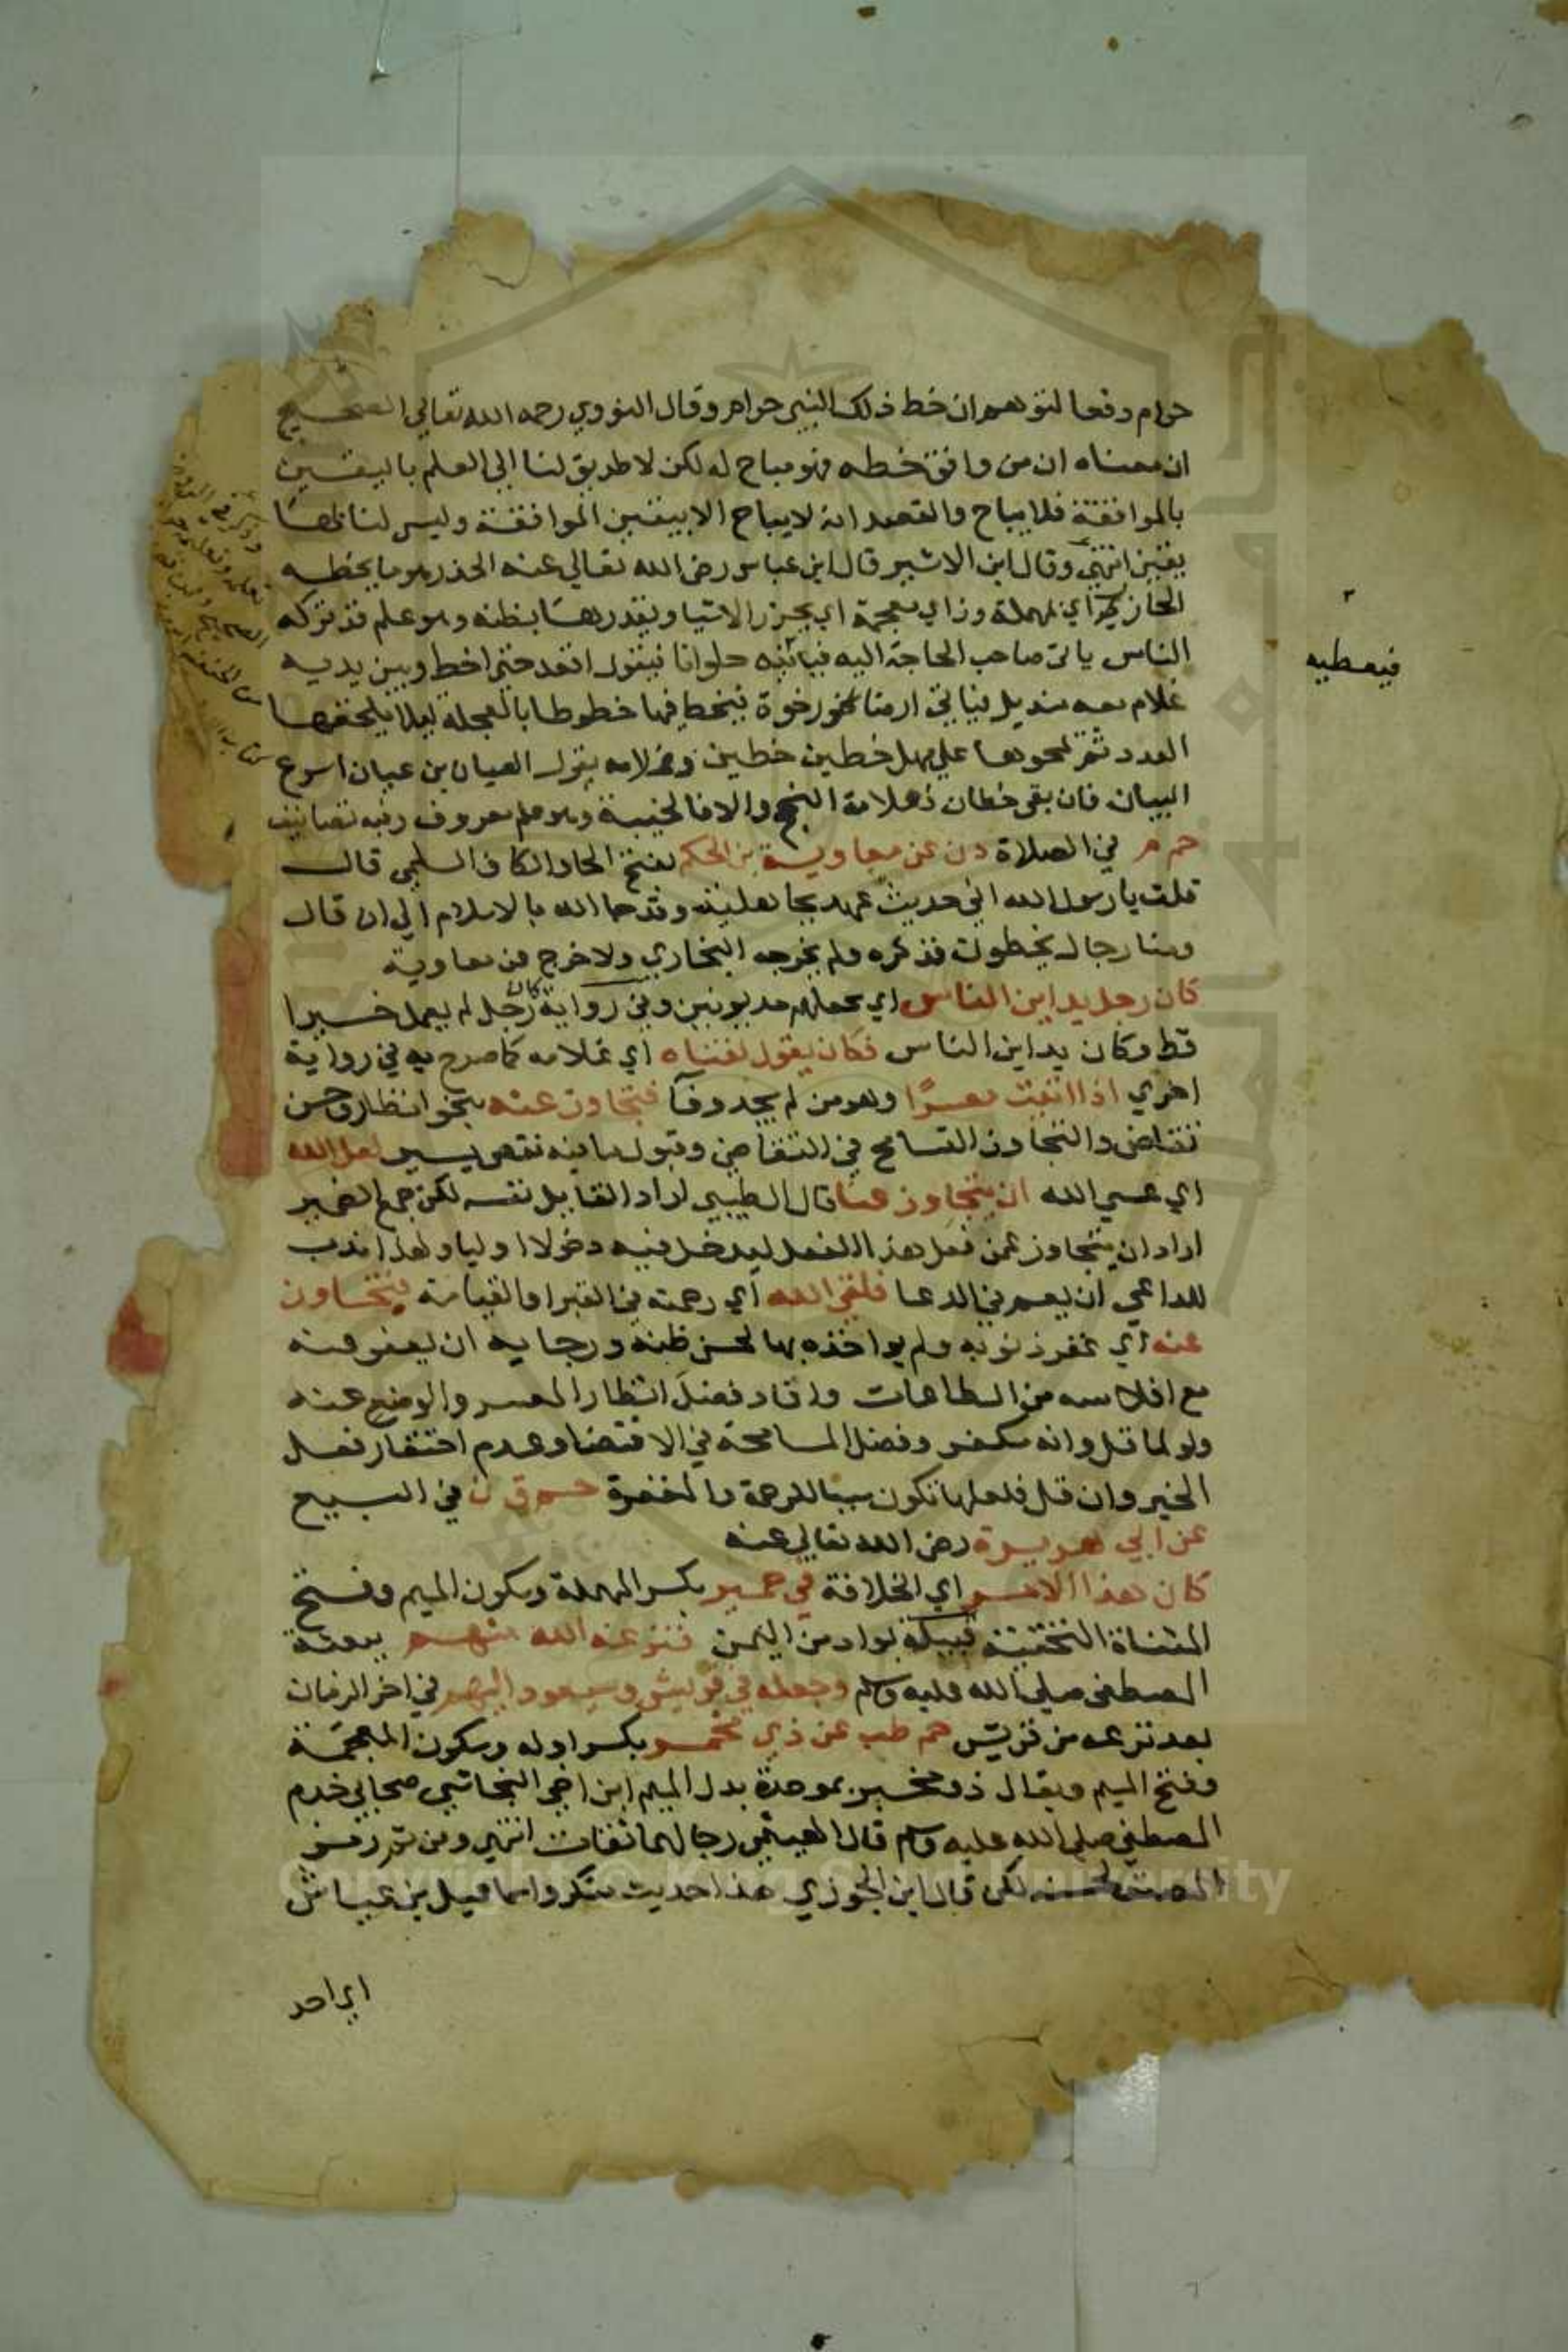 حرام دفعا لتوهم ان خط ذلك النبي حرام وقال النووي رحمه الله تعالى الصحيح
ان معناه ان من وافق خطه فهو مباح له لكن لا طريق لنا الي العلم باليقين
بالموافقة فلا يباح والقصد انه لا يباح الا بيقين الموافقة وليس لنا بها
يقين انتهى وقال ابن الاثير قال ابن عباس رضي الله تعالي عنه الحذر هو ما يخطه
الحازي اي بمهملة وزاي معجمة اي يحزر الاشيا ويقدرها بظنه وهو علم قد تركه
الناس ياتى صاحب الحاجة اليه فياتيه حلوانا فيقول اقعد حتى اخط وبين يديه
غلام معه منديل فياتى ارضا رخوة فيخط فيها خطوطا بالعجلة ليلا يلحقها
العدد ثم يمحوها علي مهل خطين خطين وغلامه يقول العيان بن عيان اسرع
البيان فان بقى خطان فعلامة النجح والا فالخيبة وهو علم معروف وفيه تصانيف
حم م في الصلاة د ن عن معاوية بن الحكم بفتح الحا والكاف السلمى قال
قلت يا رسول الله اني حديث عهد بجاهلية وقد جا الله بالاسلام الي ان قال
ومنا رجال يخطون فذكره ولم يخرجه البخاري ولا خرج من معاوية
كان رجل يداين الناس اي يجعلهم مديونين وفي رواية كان رجل لم يعمل خيرا
قط وكان يداين الناس فكان يقول لفتاه اي غلامه كما صرح به في رواية
اخري اذا اتيت معسرا وهو من لم يجد وفآ فتجاوز عنه بنحو انظار وحسن
تقاض والتجاوز التسامح في التقاضي وقبول ما فيه نقص يسير لعل الله
اي عسي الله ان يتجاوز عنا قال الطيبي اراد القايل نفسه لكن جمع الضمير
اراد ان يتجاوز عمن فعل هذا الفعل ليدخل فيه دخولا اوليا ولهذا ندب
للداعي ان يعم في الدعا فلقي الله اي رحمته في القبر او القيامة فتجاوز
عنه اي غفر ذنوبه ولم يواخذه بها لحسن ظنه ورجايه ان يعفو عنه
مع افلاسه من الطاعات وافاد فضل انظار المعسر والوضع عنه
ولو لما قل وانه مكفر وفضل المسامحة في الاقتضا وعدم احتقار فعل
الخير وان قل فلعلها تكون سببا للرحمة والمغفرة حم ق ن في البيع
عن ابي هريرة رضي الله تعالي عنه
كان هذا الامر اي الخلافة في حمير بكسر المهملة وسكون الميم وفتح
المثناة التحتية قبيلة بواد من اليمن فنزعه الله منهم ببعثة
المصطفى صلى الله عليه وسلم وجعله في قريش وسيعود اليهم في اخر الزمان
بعد نزعه من قريش حم طب عن ذي مخمر بكسر اوله وسكون المعجمة
وفتح الميم ويقال ذو مخبر بموحدة بدل الميم ابن اخي النجاشي صحابي خدم
المصطفي صلى الله عليه وسلم قال الهيثمي رجالهما ثقات انتهى ومن ثم رمز
المصنف لحسنه لكن قال ابن الجوزي هذا حديث منكر واسماعيل بن عياش
فيعطيه